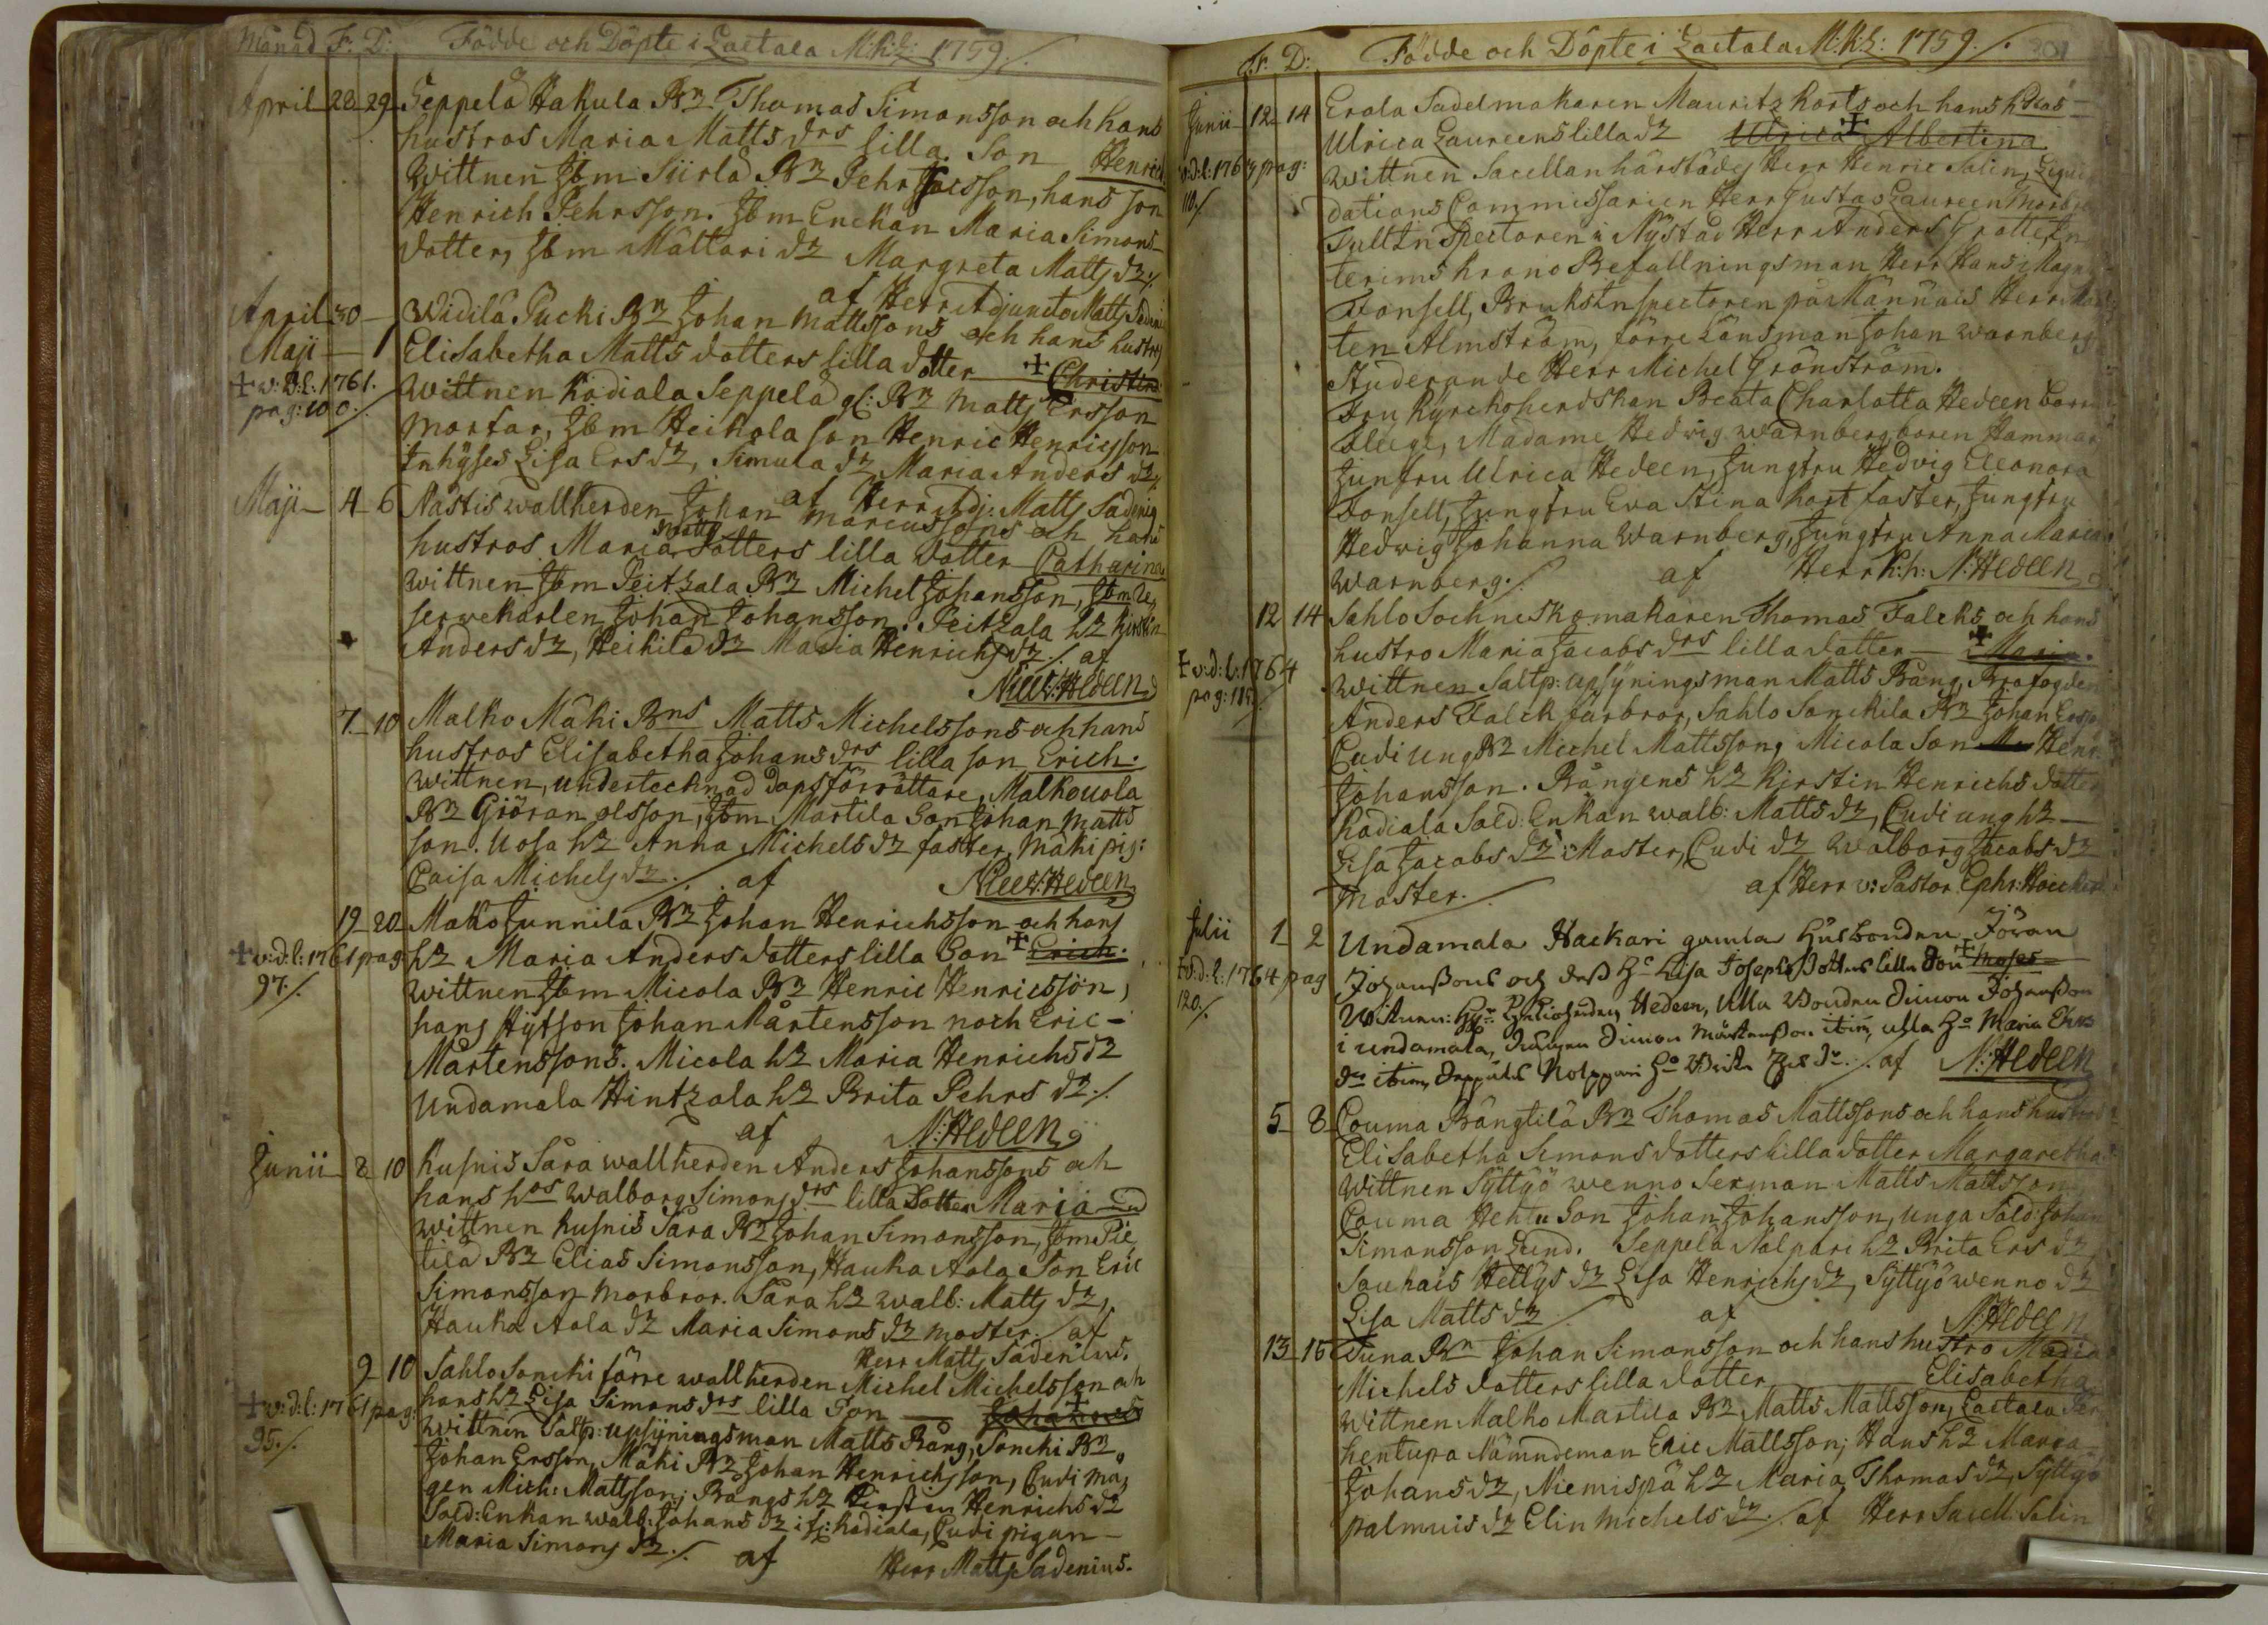 Månad F: D: Födde och Döpte i Laitala M:k:l: 1759./.
April 28 29 Seppelä Hakula Bn Thomas Simonsson och hans
hustros Maria Matts drs lilla Son Henrich
Wittnen Ibm Siirla Bn Pehr Jacsson, hans son
Henrich Pehrsson. Ibm Enckan Maria Simons-
dotter, Ibm Mattari dr Margreta Matts dr./.
af Herr Adjuncto Matts
April 30 Widilä Pucki Bn Johan Mattssons och hans hustros
Maji 1 Elisabetha Matts dotters lilla dotter Christina
v:d:l:1761. Wittnen Kodiala Seppelä gl: Bn Matts Ersson
pag:100./. Morfar, Ibm Heikola son Henric Henricsson
Inhyses Lisa Ers dr, Simula dr Maria Anders dr
af Herr Adj: Matts Sadenius
Maji 4 6 Nästis wallherden Johan Marcussons och hans
hustros Maria Matts dotters lilla dotter Catharina
Wittnen Ibm Peitzala Bn Michel Johansson, Ibm Re,
servekarlen Johan Johansson. Peitzala hr Kirstin
Anders dr, Heikilä dr Maria Henrichs dr./. af
N: Hedeen
7 10 Malko Mäki Bns Matts Michelssons och hans
hustros Elisabetha Johans drs lilla son Erich.
Wittnen, undertecknad dopsförrättare, Malkouola
Bn Giöran olsson, Ibm Martila Son Johan Matts
son. Uosa hr Anna Michels dr faster, Mäki pig:
Caisa Michels dr./. af N: Hedeen
19 20 Mako Junnila Bn Johan Henrichsson och hans
v:d:l:1761 pag: hr Maria Anders dotters lilla Son Erich.
97./. Wittnen Ibm Micola Bn Henric Henricsson,
hans Hysson Johan Mårtensson noch Eric-
Mårtenssons. Micola hr Maria Henrichs dr
Undamala Hintzala hr Brita Pehrs dr./.
af N: Hedeen
Junii 8 10 Kusnis Sara wallherden Anders Johanssons och
hans hos Walborg Simons drs lilla Dotter Maria
Wittnen Kusnis Sara Bn Johan Simonsson, Ibm Pie
tilä Bn Elias Simonsson, Hauka Aola Son Eric
Simonsson Morbror. Sara hr walb: Matts dr,
Hauka Aola dr Maria Simons dr moster./. af
Herr Matts Sadenius.
9 10 Sahlo Soncki förre wallherden Michel Michelsson och
v:d:l:1761 pag: hans hr Lisa Simons drs lilla Son Johannes
95./. Wittnen Saltp: upsyningsman Matts Rång, Soncki Bn
Johan Ersson, Mäki Bn Johan Henrichsson, Cudi Må,
gen Mich: Mattsson; Rångs hr Kirstin Henrichs dr
Sold: Enkan walb: Johans dr ifr: Kodiala, Cudi pigan
Maria Simons dr./. af Herr Matts Sadenius.
F. D: Födde och Döpte i Laitala M:k:l: 1759./. 301
Junii 12 14 Erola Sadelmakaren Mauritz Korts och hans
Ulrica Laureens lilla dr Ulrica Albertina
v:d:l:1764 pag: Wittnen Sacellan härstädes Herr Henric Salin, Liqui
110./. dations Commissarien Herr Gustav Laureen Morbror
Tull Inspectoren i Nystad Herr Anders Grotte, In
terims Krono Befallningsman Herr Hans Magnus
Fonsell, Bruks Inspectoren på Männäis Herr
ten Almström, förre Länsman Johan Warnberg
Studerande Herr Michel Grönström.
Fru Kyrckoherdskan Beata Charlotta Hedeen boren
Fleege, Madame Hedvig Warnberg boren Hammar
Junfru Ulrica Hedeen, Jungfru Hedvig Eleonora
Fonsell, Jungfru Eva Stina Kort faster, Jungfru
Hedwig Johanna Warnberg, Jungfru Anna Maria
Warnberg./. af Herr K:h: N: Hedeen
12 14 Sahlo Sockneskomakaren Thomas Falcks och hans
hustro Maria Jacobs drs lilla dotter Maria.
v:d:l:1764 Wittnen Saltp: upsyningsman Matts Rång, Brofogden
pag:115./. Anders Falck farbror, Sahlo Sonckila Bn Johan Ersson
Cudi ung Bn Michel Mattsson, Micola Son Henr:
Johansson. Rångens hr Kirstin Henrichs dotter
Kodiala Sold: Enkan walb: Matts dr, Cudi ung hr
Lisa Jacobs dr Moster, Cudi dr Walborg Jacobs dr
Moster./. af Herr v: Pastor Ephr: Hoeckert
Julii 1 2 Undamala Hackari gamla Husbonden Jöran
v:d:l:1764 pag Johanssons och dess hr Lisa Josephs dotters lilla Son Moses
120./. Wittnen: Hedeen, Ulla Bonden Simon Johansson
i Undamala, Drängen Simon Mårtensson ibm, Ulla hr Maria Ers
dr ibm, Seppälä Nolppari hr Brita Ers dr./. af N: Hedeen
5 8 Couma Rångtilä Bn Thomas Mattssons och hans hustros
Elisabetha Simons dotters lilla dotter Margaretha
Wittnen Syttyö wenno Sexman Matts Mattsson
Couma Hehtu Son Johan Johansson, unga Sold: Johan
Simonsson Lund. Seppelä Nolpari hr Brita Ers dr
Sauhais Hellys dr Lisa Henrichs dr, Syttyö wenno dr
Lisa Matts dr./. af N: Hedeen
13 15 Tuna Bn Johan Simonsson och hans hustro Maria
Michels dotters lilla dotter Elisabetha
Wittnen Malko Martila Bn Matts Mattsson, Laitala
hentupa Nämndeman Eric Mattsson; Hans hr Maria
Johans dr, Niemispä hr Maria Thomas dr, Syttyö
palmuis dr Elin Michels dr./. af Herr Sacell: Salin